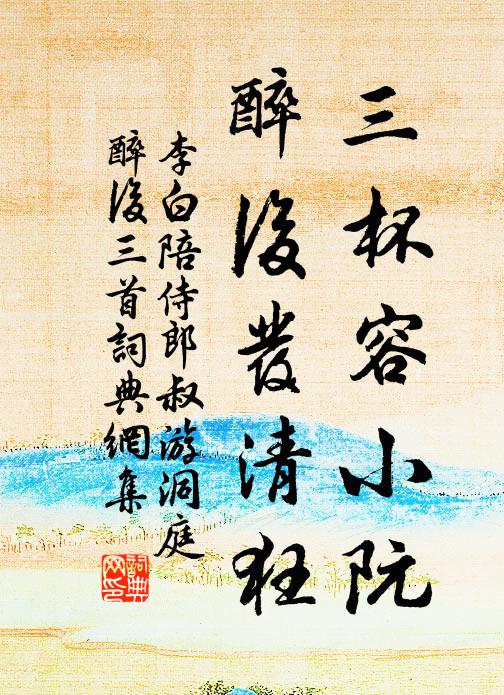 三杯容小阮
醉後發清狂
李白陪侍郎叔游洞庭
醉後三首詞典網集
詞典
网印